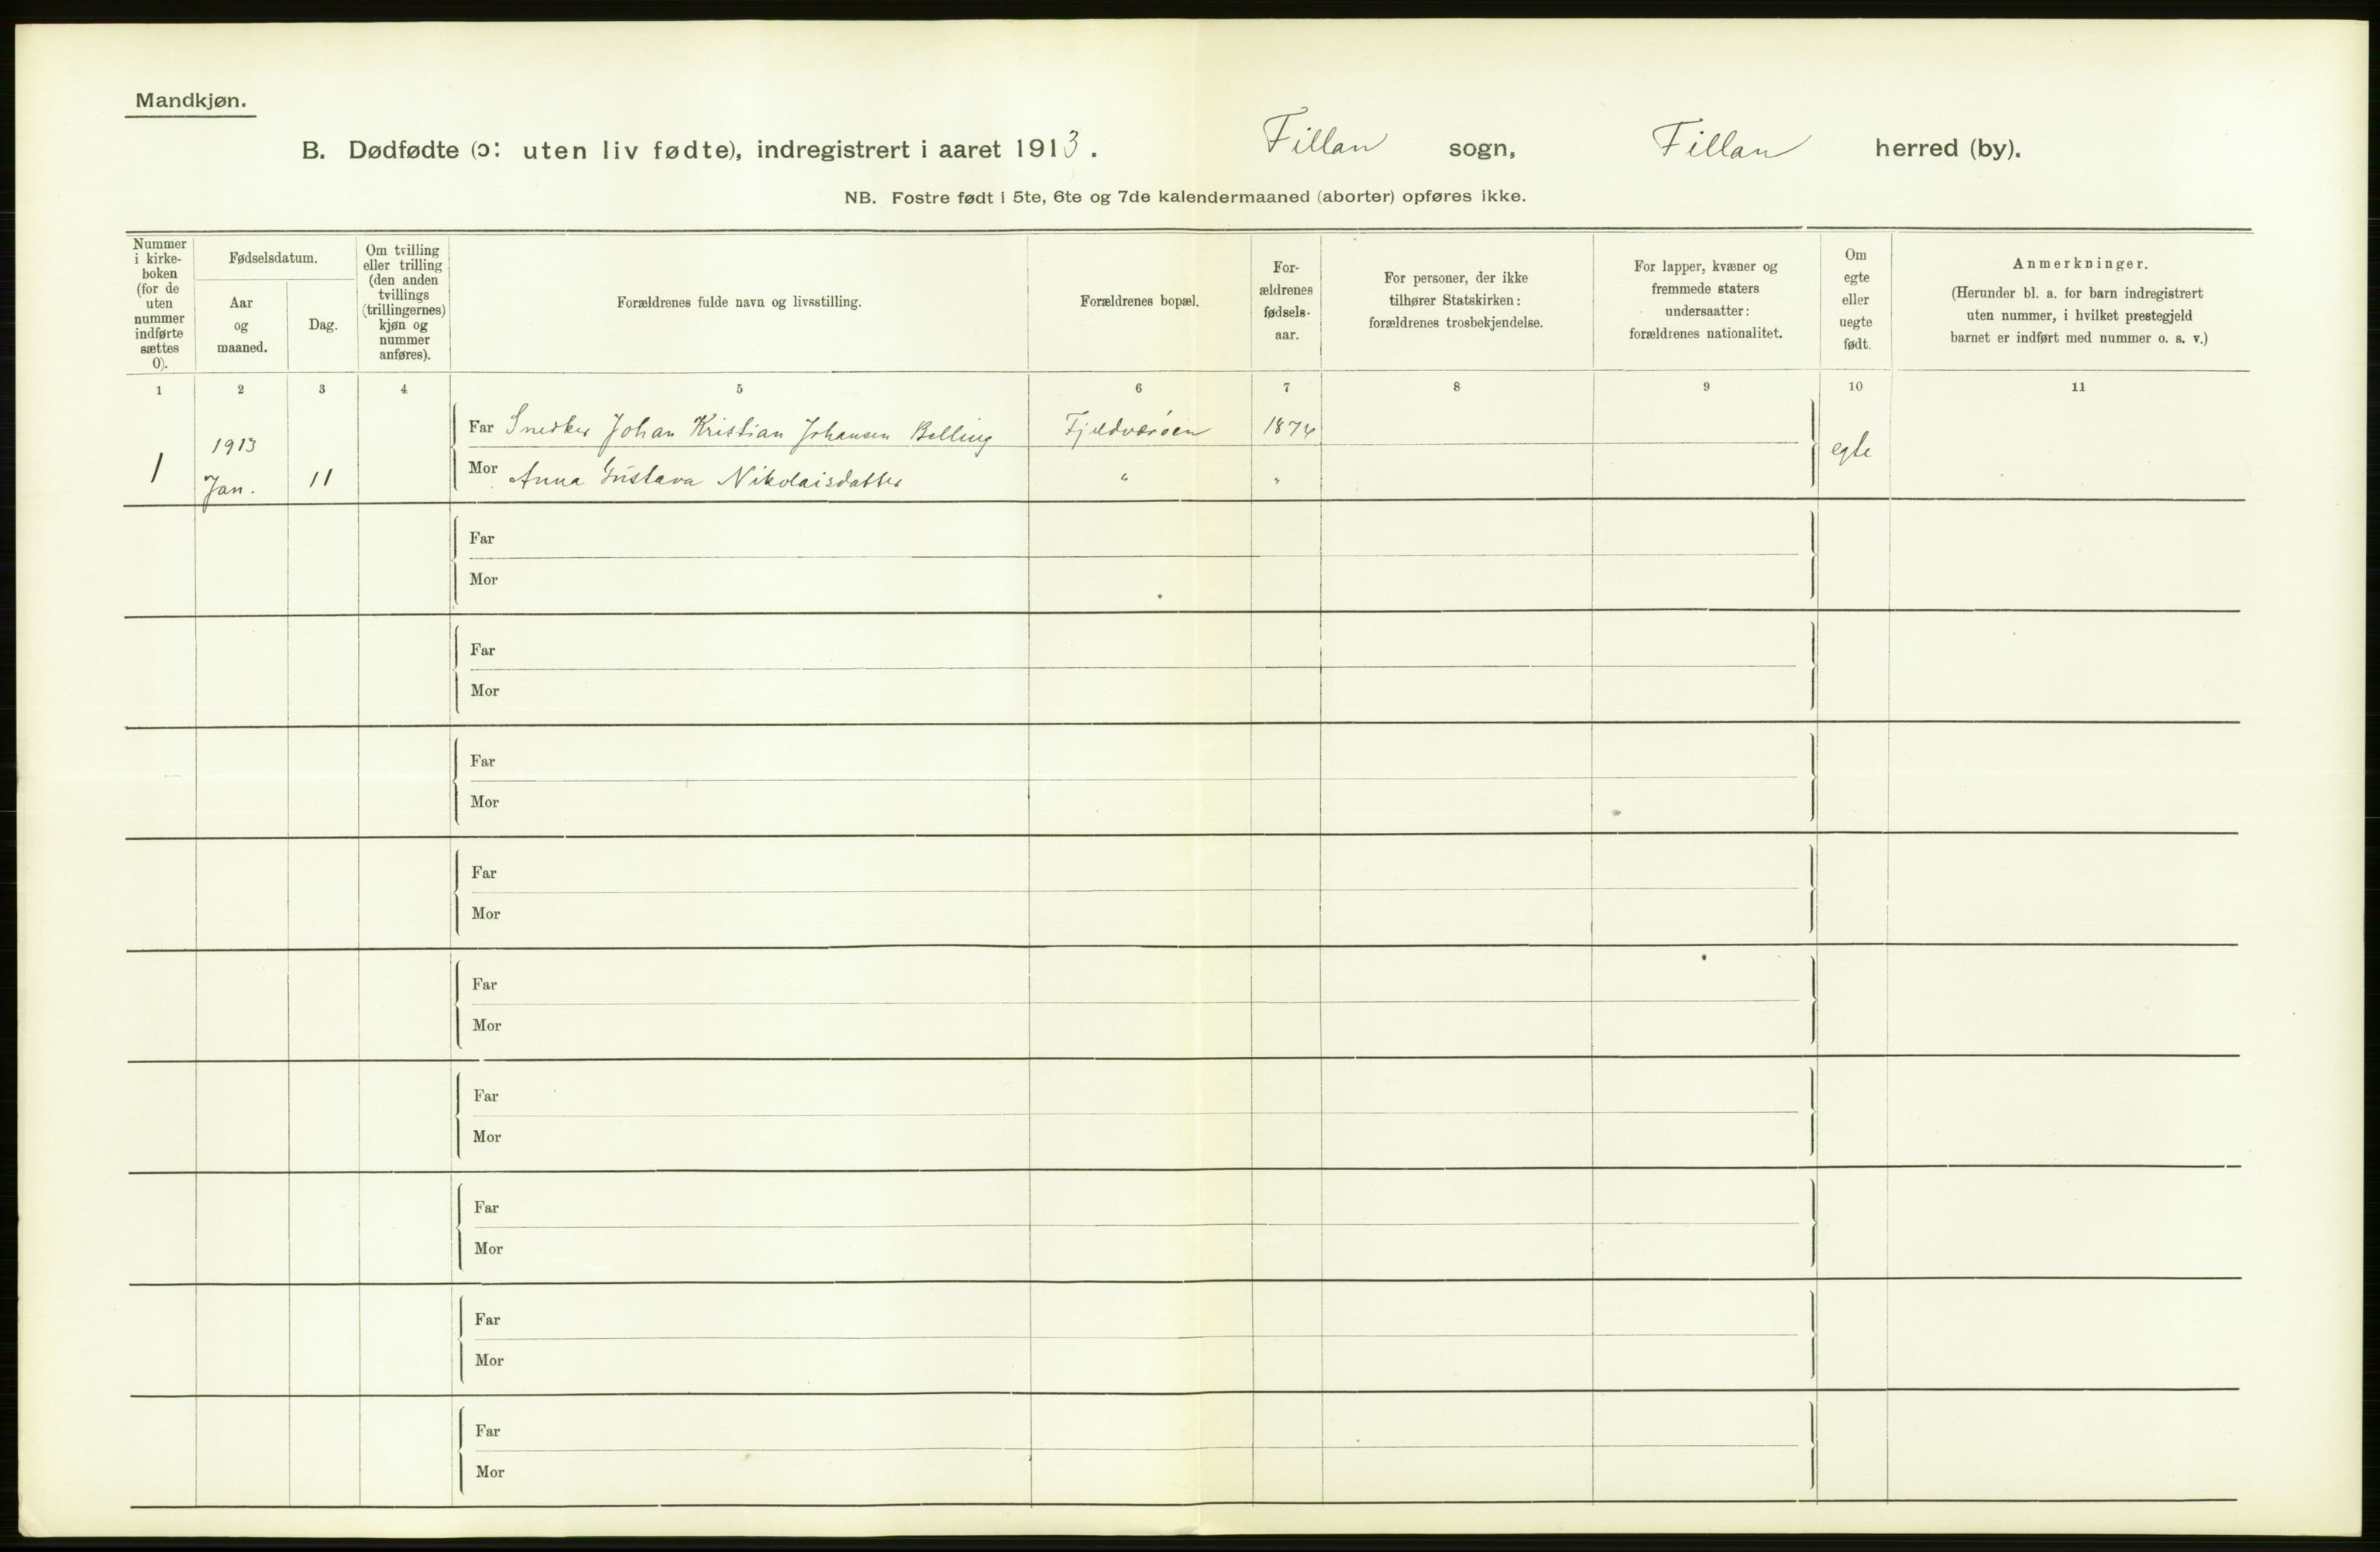 Mandkjøn.
B. Dødfødte (ɔ: uten liv fødte), indregistrert i aaret 1913. Fillan sogn, Fillan herred (by).
NB. Fostre født i 5te, 6te og 7de kalendermaaned (aborter) opføres ikke.
Nummer
i kirke-
boken
(for de
uten
nummer
indførte
sættes
0).
Fødselsdatum.
Aar
og
maaned.
Dag.
Om tvilling
eller trilling
(den anden
tvillings
(trillingernes)
kjøn og
nummer
anføres).
Forældrenes fulde navn og livsstilling.
Forældrenes bopæl.
For-
ældrenes
fødsels-
aar.
For personer, der ikke
tilhører Statskirken:
forældrenes trosbekjendelse.
For lapper, kvæner og
fremmede staters
undersaatter:
forældrenes nationalitet.
Om
egte
eller
uegte
født.
Anmerkninger.
(Herunder bl. a. for barn indregistrert
uten nummer, i hvilket prestegjeld
barnet er indført med nummer o. s. v.)
1 2 3 4 5 6 7 8 9 10 11
1913
Far Snedker Johan Kristian Johansen Belling Fjeldværøen 1874
1 Jan. 11 egte
Mor Anna Gustava Nikolaisdatter " "
Far
Mor
Far
Mor
Far
Mor
Far
Mor
Far
Mor
Far
Mor
Far
Mor
Far
Mor
Far
Mor